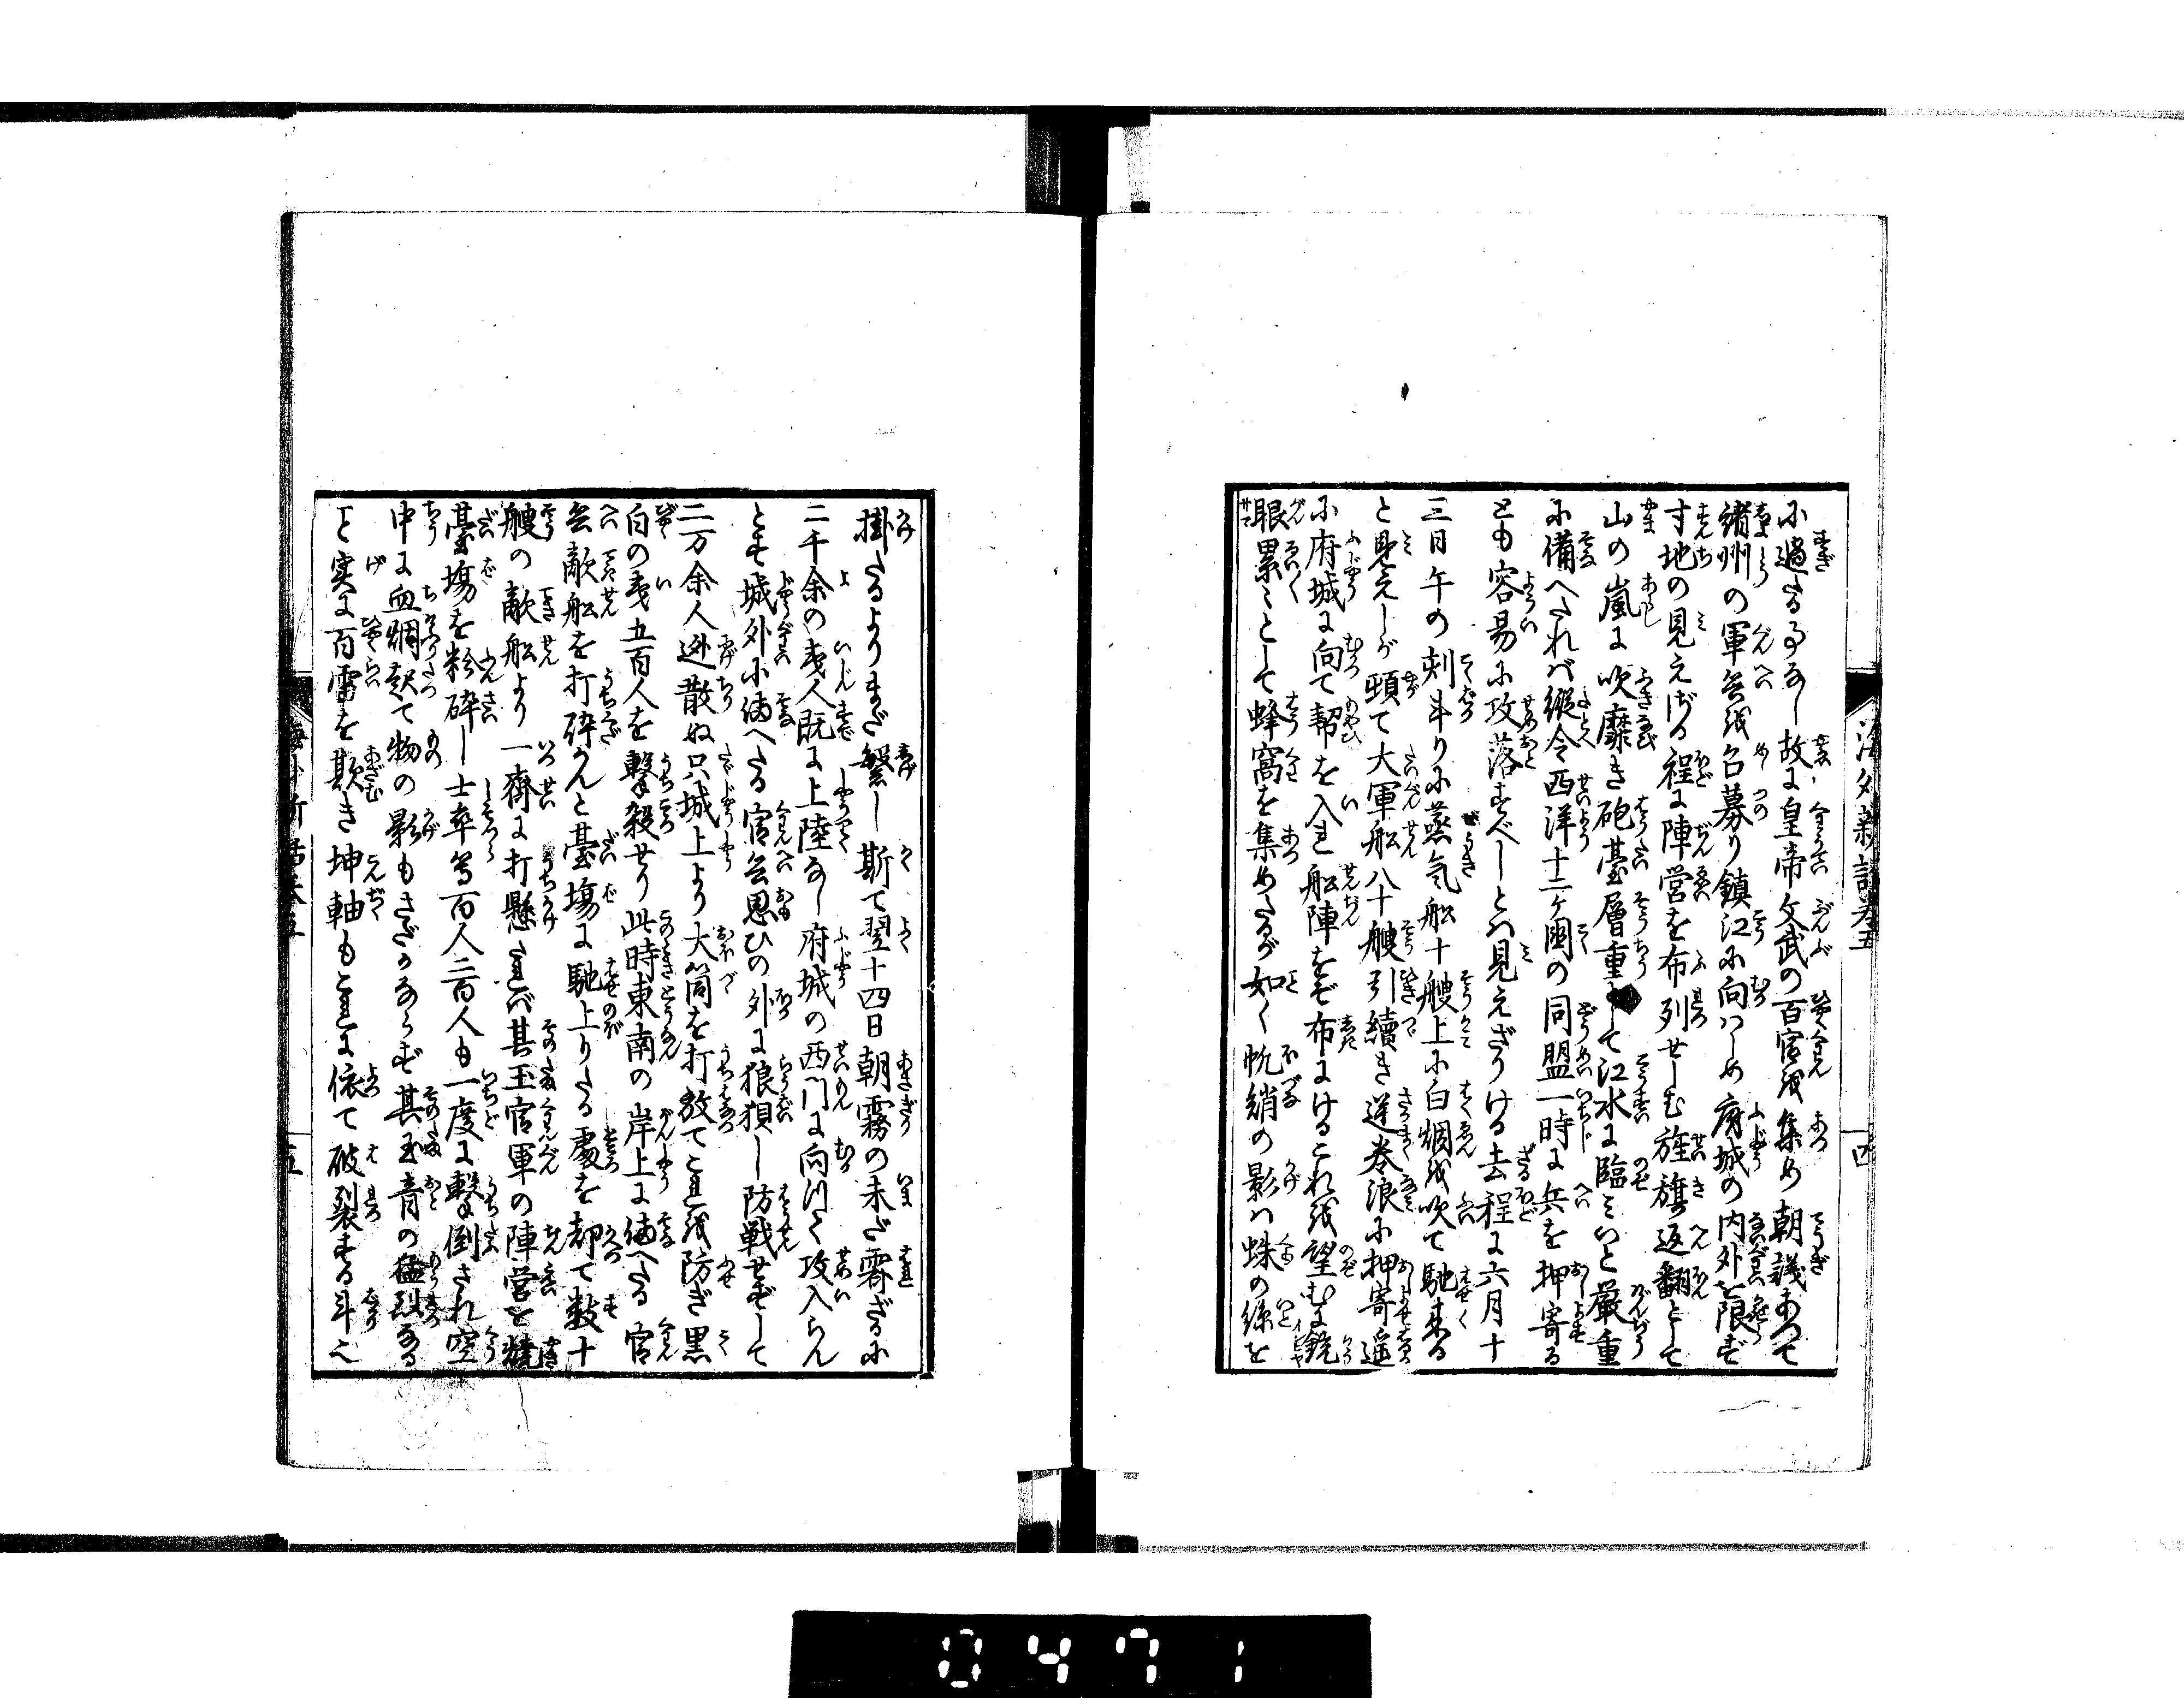 に過たる事なし故に皇帝文武の百官を集め朝議あつて
諸州の軍兵を召募り鎮江に向はしめ府城の内外を限ず
寸地の見えざる程に陣営を布列せしむ旌旗返翻として
山の嵐に吹靡き砲臺層重して江水に臨みいと嚴重
に備へたれば縦令西洋十二ヶ國の同盟一時に兵を押寄る
とも容易に攻落すべしとは見えざりける去程に六月十
三日午の刻斗りに蒸気船十艘上に白烟を吹て馳来る
と見えしが頓て大軍船八十艘引續き逆巻浪に押寄遥
に府城に向て軔を入れ船陣をぞ布にけるこれを望むに銃
眼累々として蜂窩を集めたるが如く帆綃の影は蛛の絲を
海外新話巻五
四
掛たるよりまだ繁し斯て翌十四日朝霧の未だ霽ざるに
二千余の夷人既に上陸なし府城の西門に向ひて攻入らん
とす城外に備へたる官兵思ひの外に狼狽し防戦せずして
二万余人迯散ぬ只城上より大筒を打放てこれを防ぎ黒
白の夷五百人を撃殺せり此時東南の岸上に備へたる官
兵敵船を打砕かんと臺場に馳上りたる處を却て数十
艘の敵船より一齊に打懸たれば其玉官軍の陣営を焼
臺場を粉砕し士卒等百人二百人も一度に撃倒され空
中に血烟起て物の影もさだかならず其玉音の猛烈なる
こと実に百雷を欺き坤軸もこれに依て破裂する斗に
海外新話巻五
五
0471